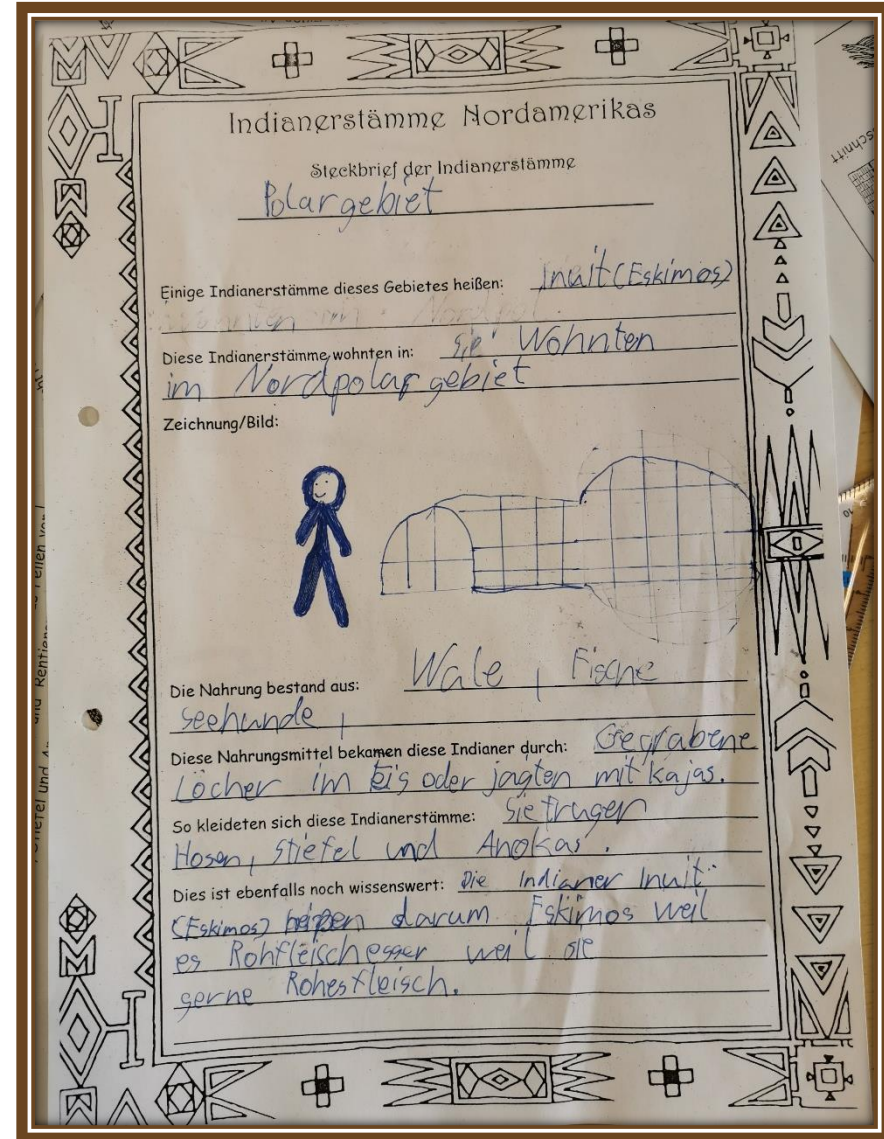 Indianerstämme Nordamerikas
Steckbrief der Indianerstämme
Polargebiet
Einige Indianerstämme dieses Gebietes heißen: Inuit (Eskimos)
Diese Indianerstämme wohnten in: sie Wohnten
im Nordpolargebiet
Zeichnung/Bild:
Die Nahrung bestand aus: Wale, Fische
seehunde,
Diese Nahrungsmittel bekamen diese Indianer durch: Gegrabene
Löcher im Eis oder jagten mit kajas.
So kleideten sich diese Indianerstämme: Sie trugen
Hosen, Stiefel und Anokas.
Dies ist ebenfalls noch wissenswert: Die Indianer Inuit
(Eskimos) heißen darum Eskimos weil
es Rohfleischesser weil sie
gerne Rohesfleisch.